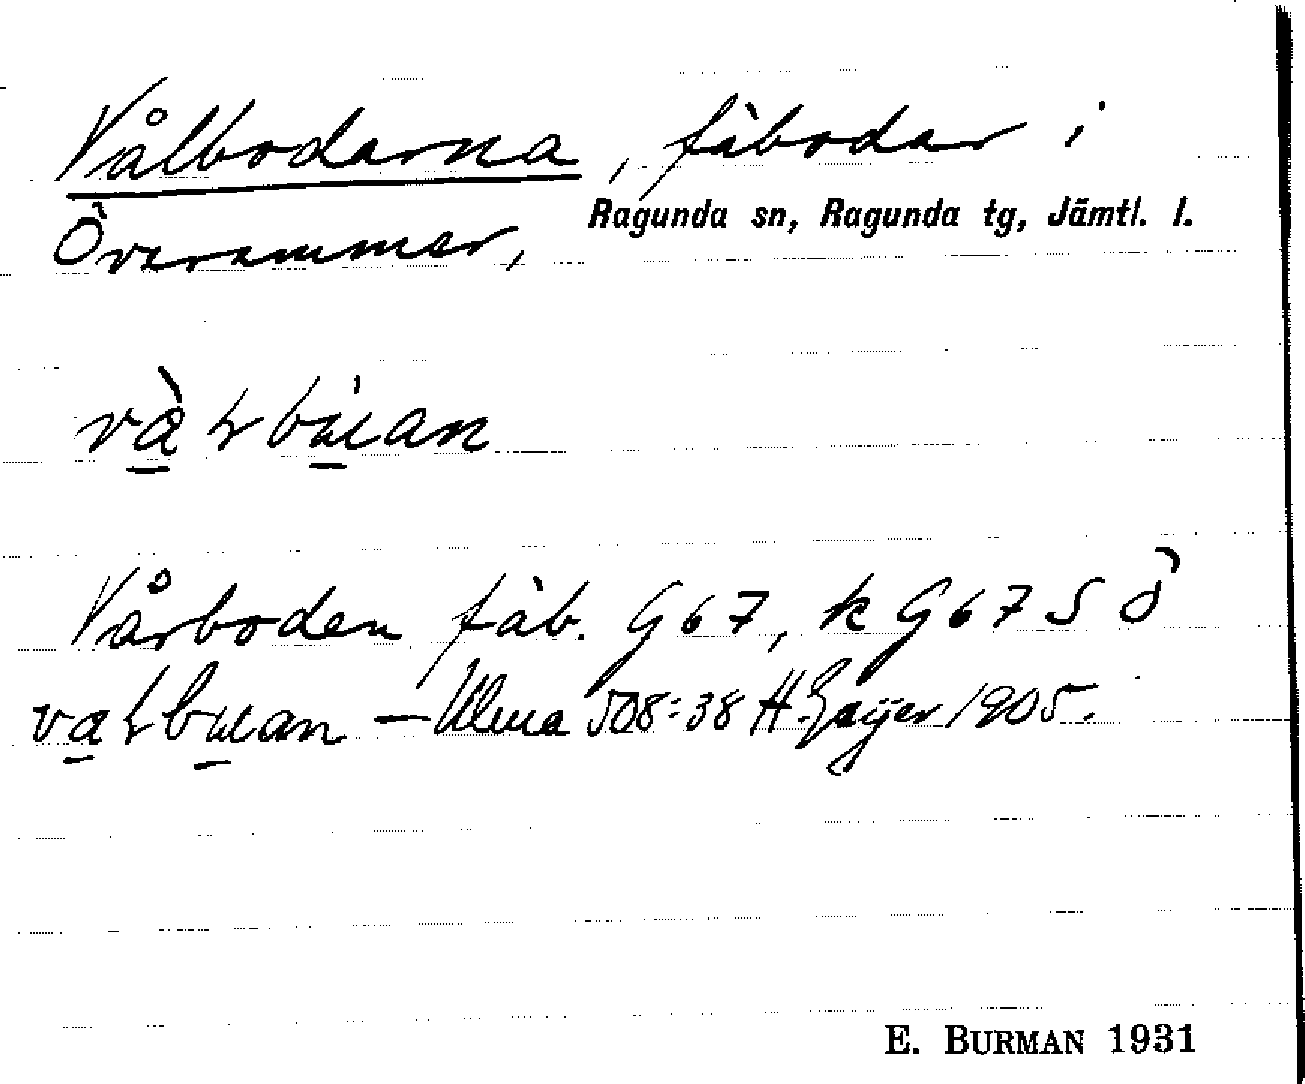 Vålbodarna, fäbodar i
Ragunda sn, Ragunda tg, Jämtl. l.
Överammer,
Vårboden fäb. G67, k G67 S Ö
Ulma 508:38 H. Geijer 1905.
E. BURMAN 1931